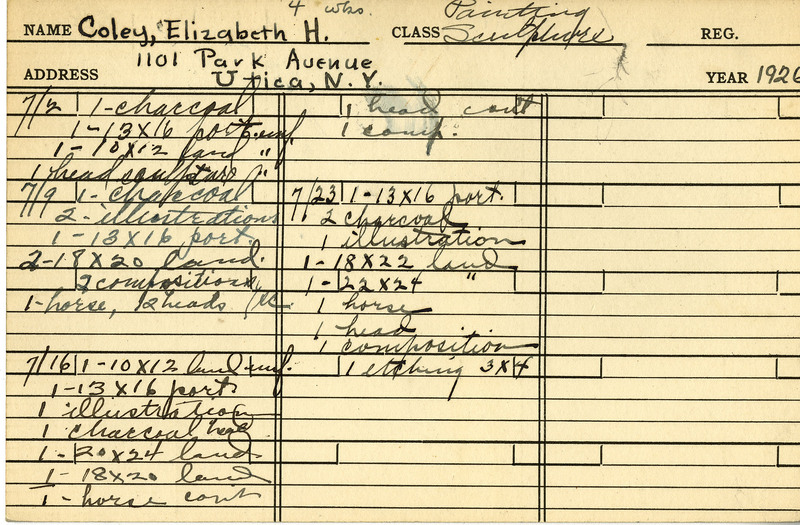 4 wks.
NAME Coley, Elizabeth H. CLASS Painting Sculpture REG.
ADDRESS 1101 Park Avenue
Utica, N.Y. YEAR 1926
7/2 1-charcoal
1-13X16 port. unf
1-10X12 land "
1 head sculpture "
7/9 1-charcoal
2-illustrations
1-13X16 port.
2-18X20 land.
2 compositions
1-horse, 12 heads
7/16 1-10X12 land-unf.
1-13X16 port
1 illustration
1 charcoal head
1-20X24 land
1-18X20 land
1-horse cont
1 head cont
1 comp.
7/23 1-13X16 port.
2 charcoal
1 illustration
1-18X22 land
1-22X24 "
1 horse
1 head
1 composition
1 etching 3X4